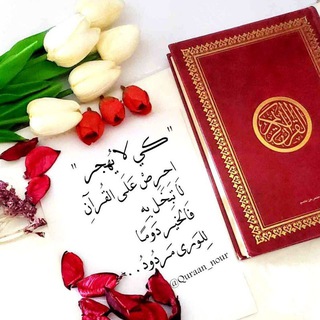 "كي لا يُهجر"
احرص عَلَى القُرآنِ
لا تبخل به
فالخير دومًا
للورى مردود..
@Quraan_nour
القرآن الكريم